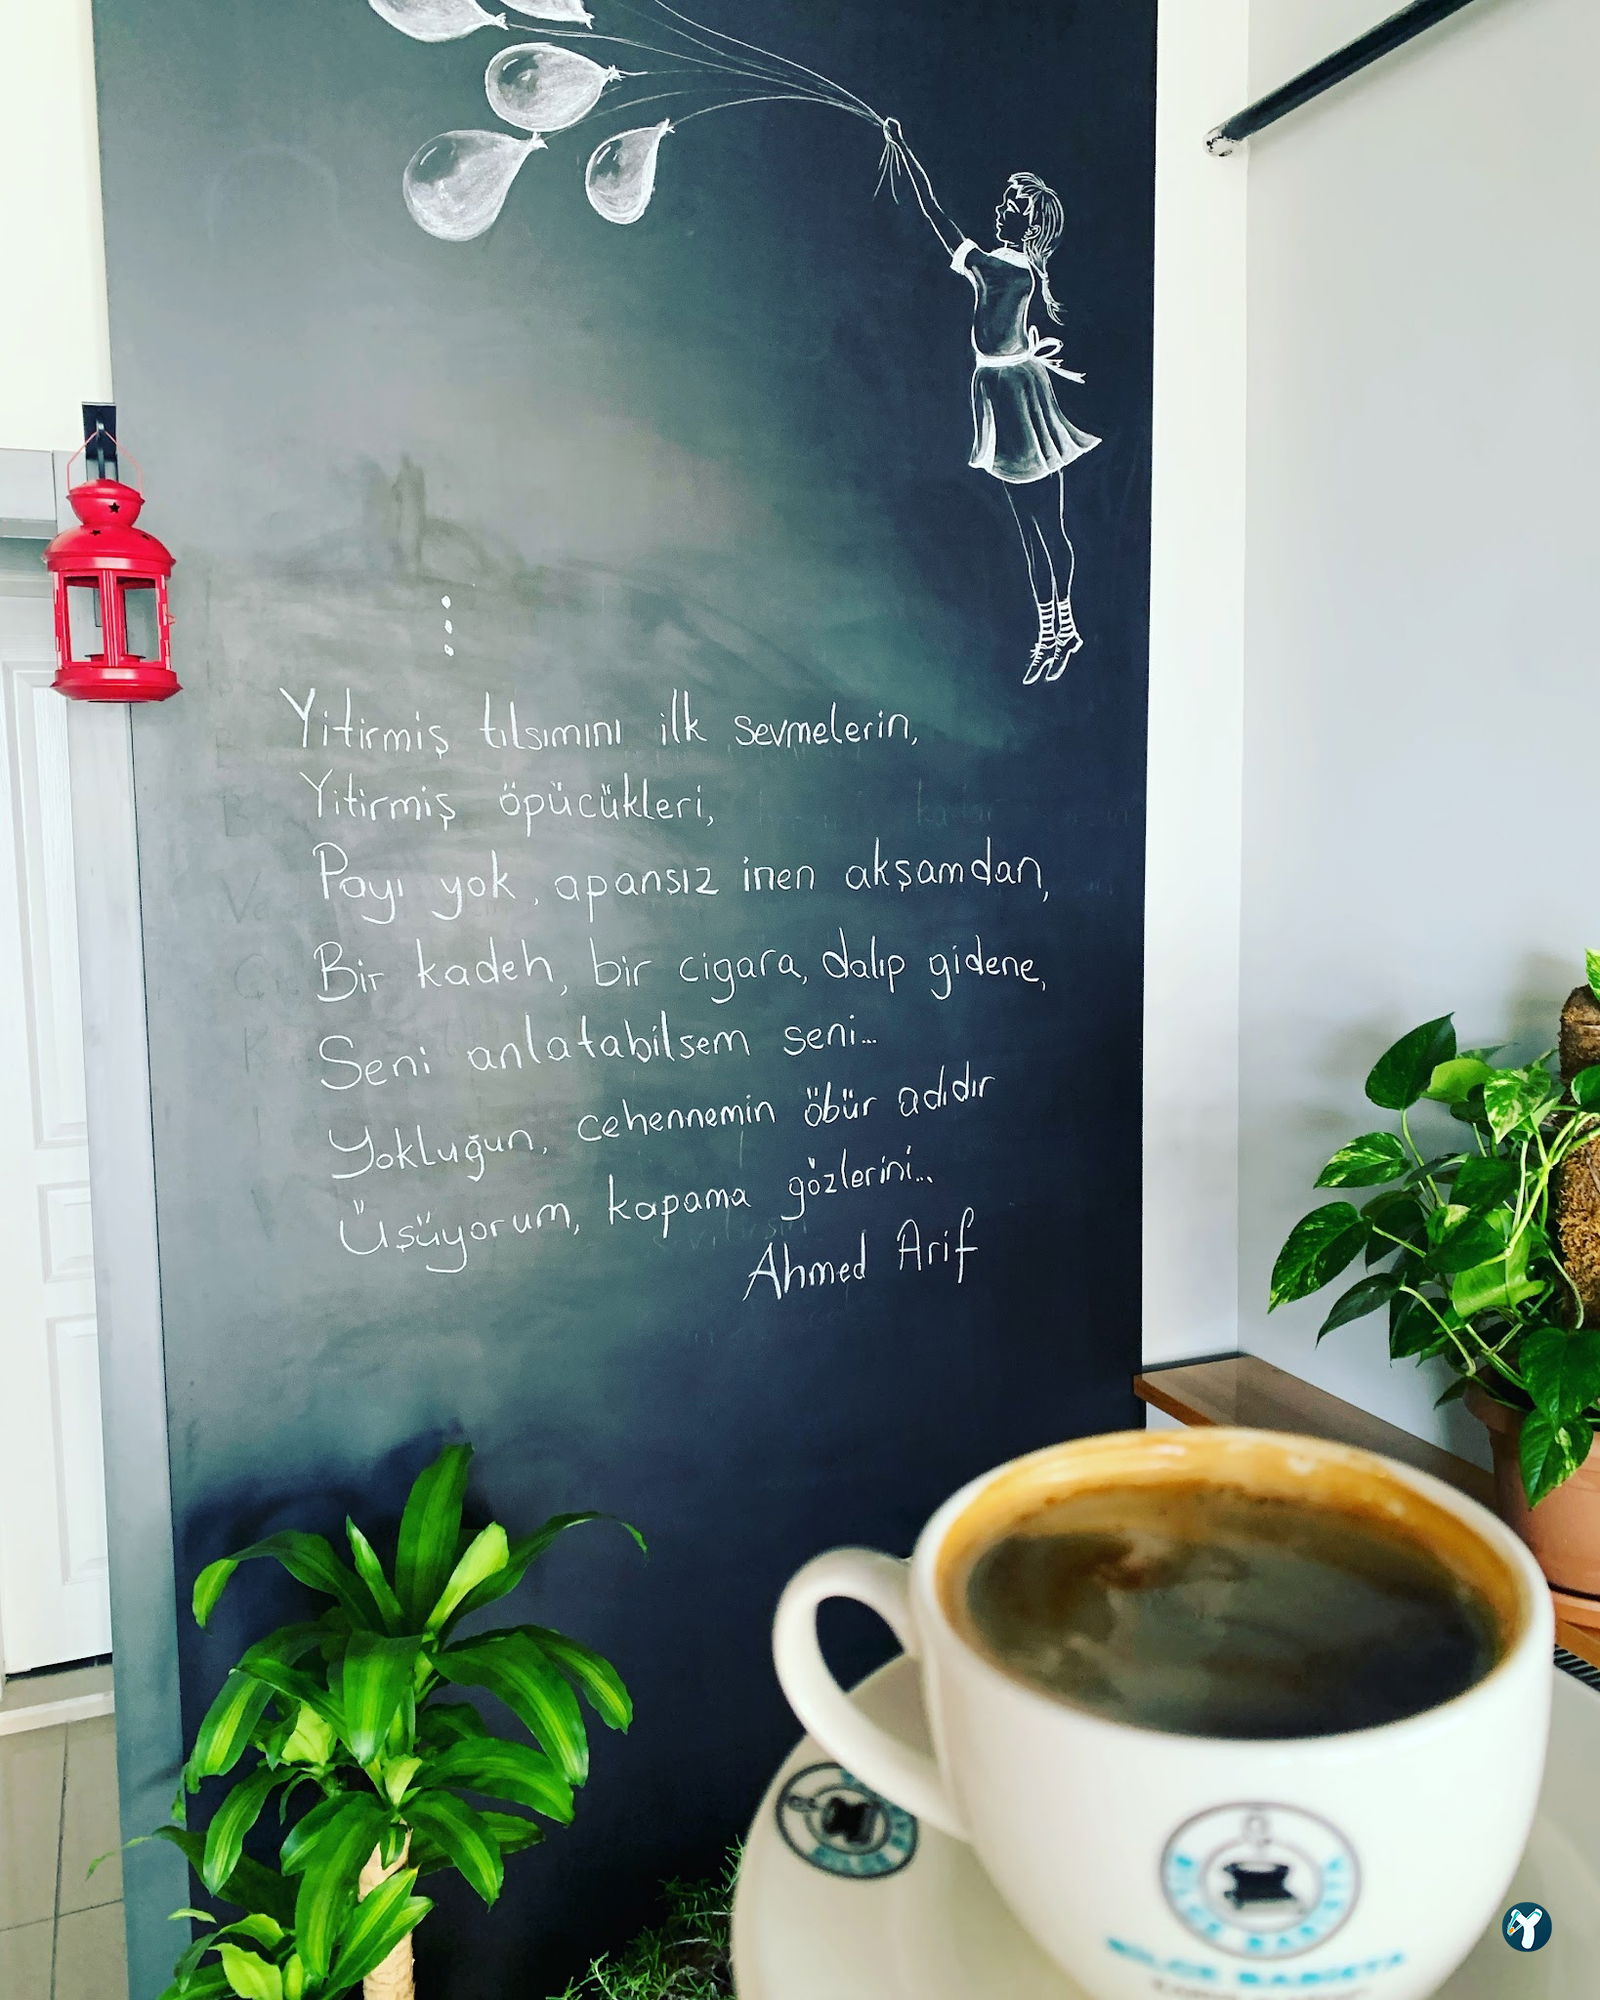 Yitirmiş tılsımını ilk sevmelerin,
Yitirmiş öpücükleri,
Payı yok, apansız inen akşamdan,
Bir kadeh, bir cigara, dalıp gidene,
Seni anlatabilsem seni...
Yokluğun, cehennemin öbür adıdır
Üşüyorum, kapama gözlerini...
Ahmed Arif
BİLGE BARİSTA
BİLGE BARİSTA